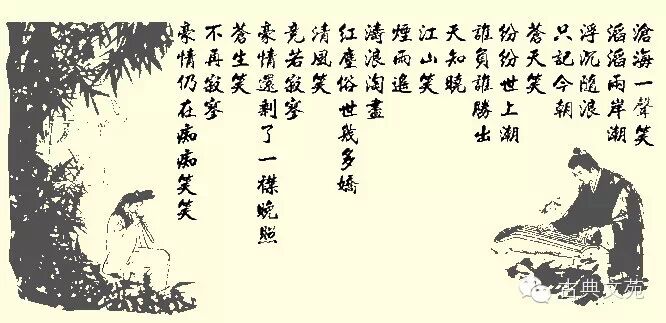 滄海一聲笑
滔滔兩岸潮
浮沉隨浪
只記今朝
蒼天笑
紛紛世上潮
誰負誰勝出
天知曉
江山笑
煙雨遙
濤浪淘盡
紅塵俗世幾多嬌
清風笑
竟若寂寥
豪情還剩了一襟晚照
蒼生笑
不再寂寥
豪情仍在痴痴笑笑
古典文苑